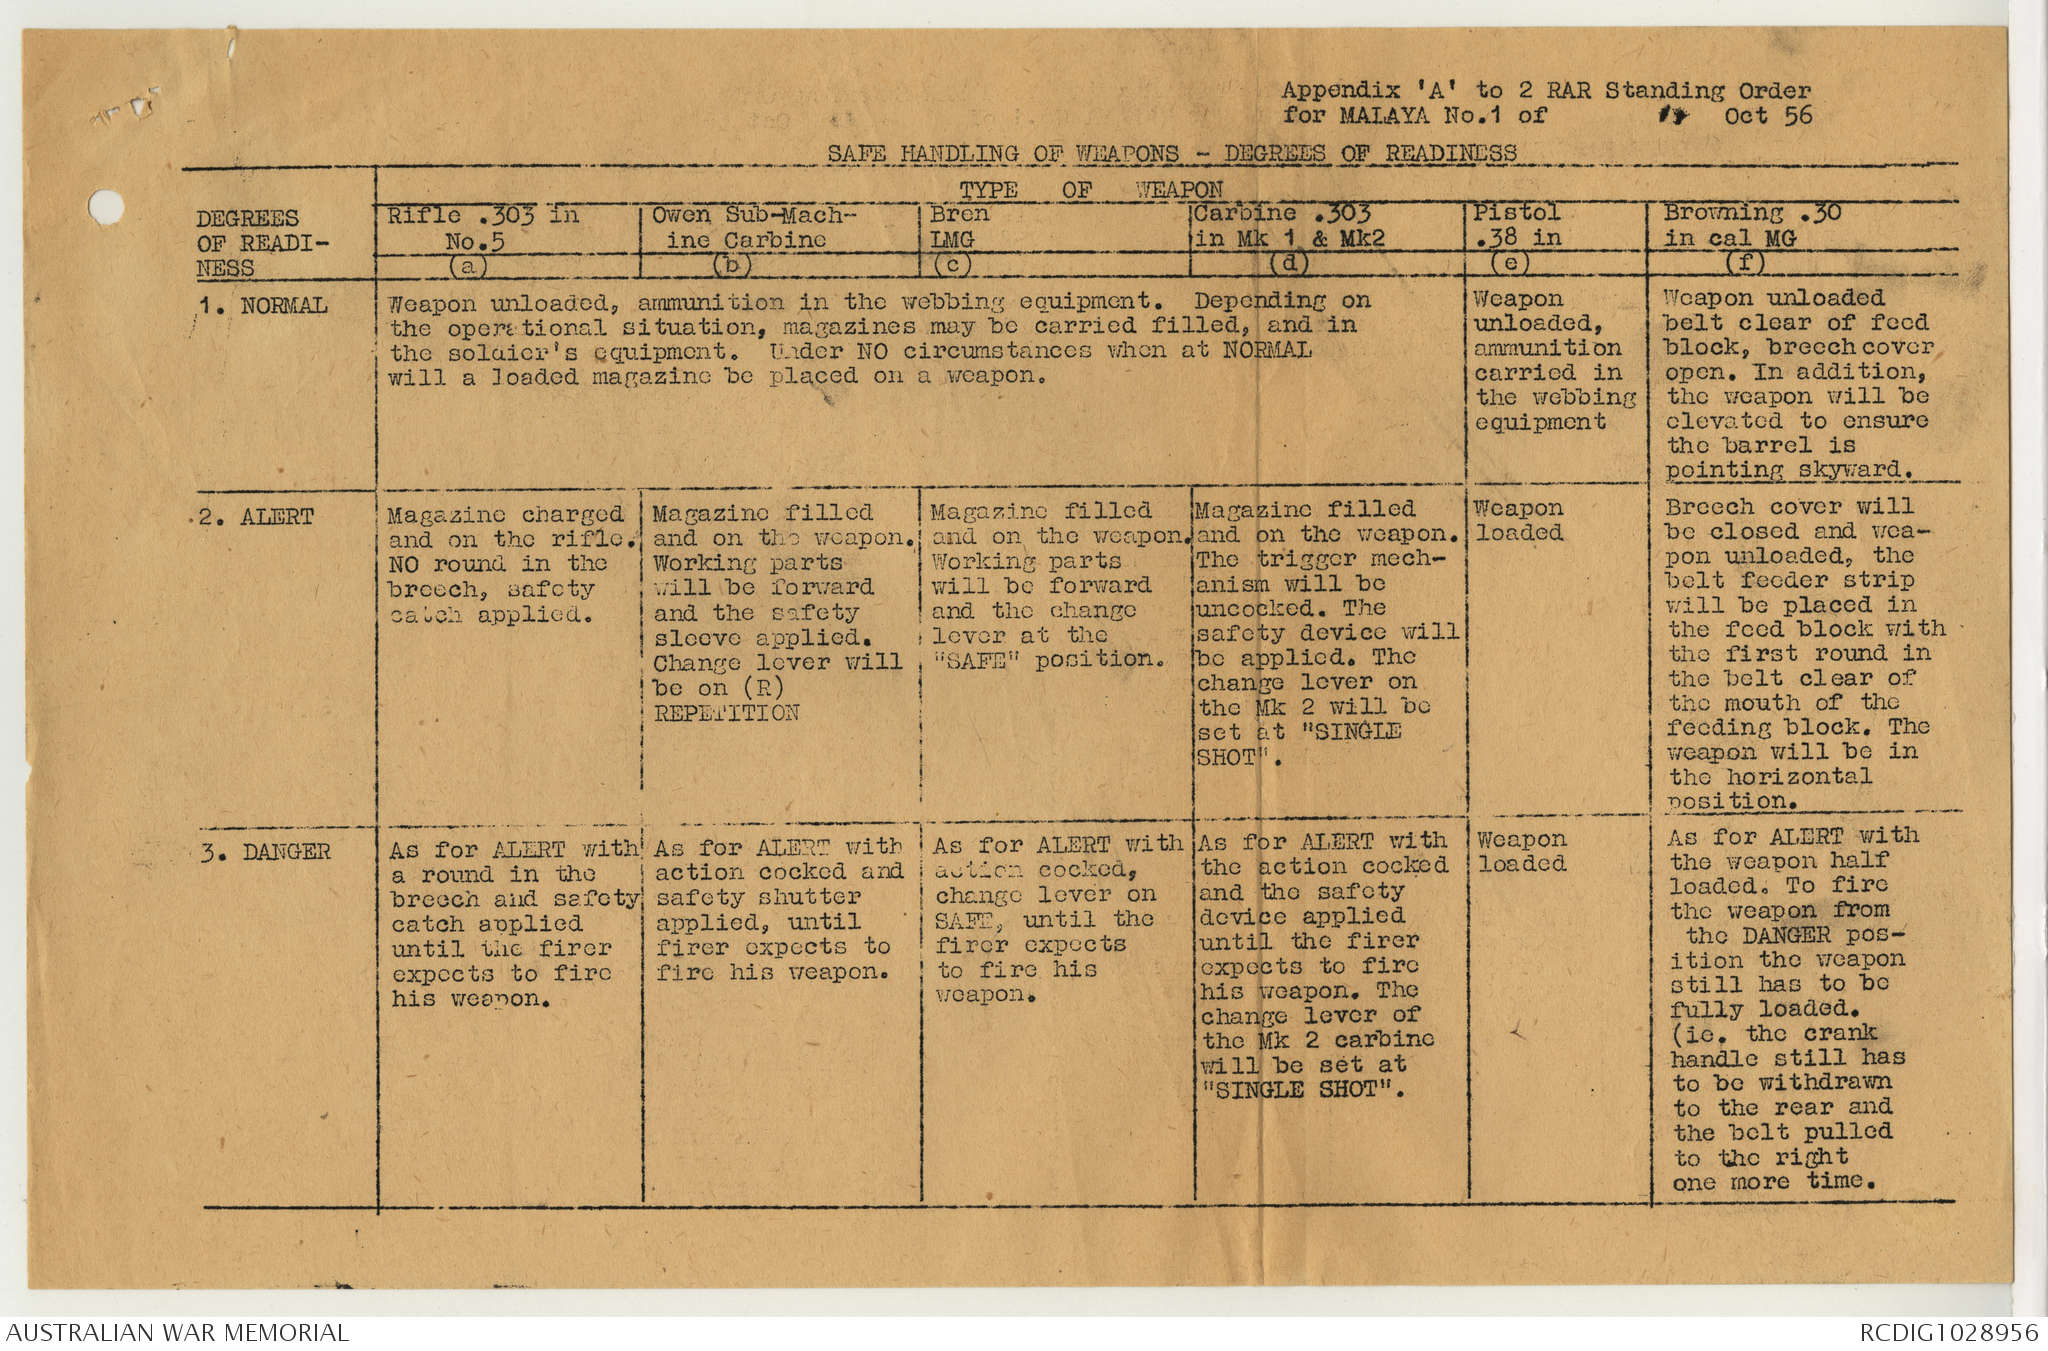 Appendix 'A' to 2 RAR Standing Order
for MALAYA No.1 of Oct 56
SAFE HANDLING OF WEAPONS - DEGREES OF READINESS
DEGREES
OF READI-
NESS
TYPE OF WEAPON
Rifle .303 in
No.5
(a)
Owen Sub-Mach-
ine Carbine
(b)
Bren
LMG
(c)
Carbine .303
in Mk 1 & Mk2
(d)
Pistol
.38 in
(e)
Browning .30
in cal MG
(f)
1. NORMAL
Weapon unloaded, ammunition in the webbing equipment. Depending on
the operational situation, magazines may be carried filled, and in
the soldier's equipment. Under NO circumstances when at NORMAL
will a loaded magazine be placed on a weapon.
Weapon
unloaded,
ammunition
carried in
the webbing
equipment
Weapon unloaded
belt clear of feed
block, breech cover
open. In addition,
the weapon will be
elevated to ensure
the barrel is
pointing skyward.
2. ALERT
Magazine charged
and on the rifle.
NO round in the
breech, safety
catch applied.
Magazine filled
and on the weapon.
Working parts
will be forward
and the safety
sleeve applied.
Change lever will
be on (R)
REPETITION
Magazine filled
and on the weapon.
Working parts
will be forward
and the change
lever at the
"SAFE" position.
Magazine filled
and on the weapon.
The trigger mech-
anism will be
uncocked. The
safety device will
be applied. The
change lever on
the Mk 2 will be
set at "SINGLE
SHOT".
Weapon
loaded
Breech cover will
be closed and wea-
pon unloaded, the
belt feeder strip
will be placed in
the feed block with
the first round in
the belt clear of
the mouth of the
feeding block. The
weapon will be in
the horizontal
position.
3. DANGER
As for ALERT with
a round in the
breech and safety
catch applied
until the firer
expects to fire
his weapon.
As for ALERT with
action cocked and
safety shutter
applied, until
firer expects to
fire his weapon.
As for ALERT with
action cocked,
change lever on
SAFE, until the
firer expects
to fire his
weapon.
As for ALERT with
the action cocked
and the safety
device applied
until the firer
expects to fire
his weapon. The
change lever of
the Mk 2 carbine
will be set at
"SINGLE SHOT".
Weapon
loaded
As for ALERT with
the weapon half
loaded. To fire
the weapon from
the DANGER pos-
ition the weapon
still has to be
fully loaded.
(ie. the crank
handle still has
to be withdrawn
to the rear and
the belt pulled
to the right
one more time.
AUSTRALIAN WAR MEMORIAL
RCDIG1028956